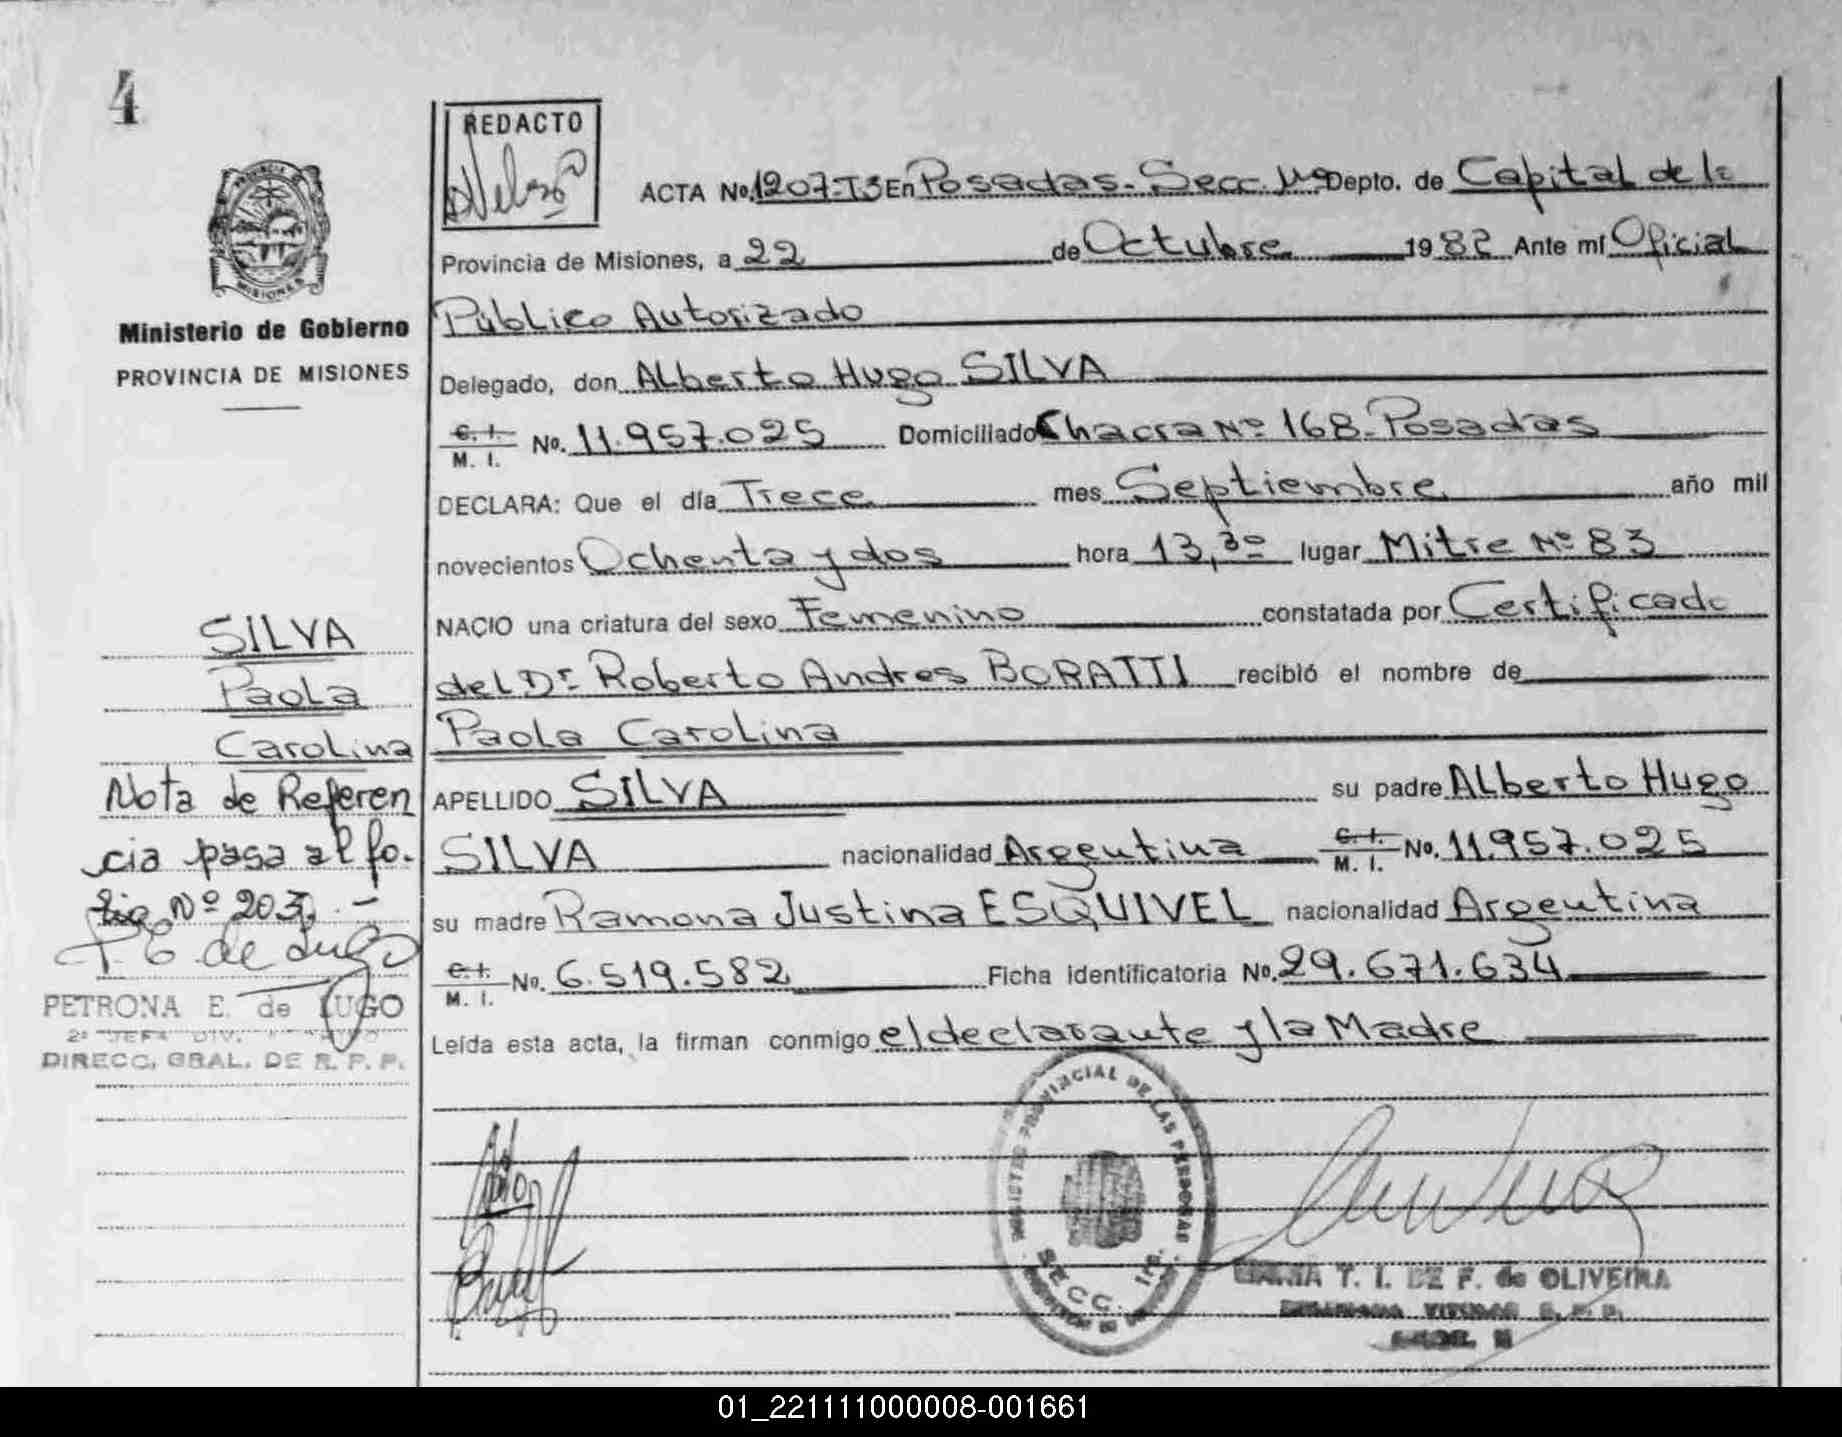 4
REDACTO
ACTA No. 1207-T3 En Posadas - Secc. 1ra Depto. de Capital de la
Provincia de Misiones, a 22 de Octubre 1982 Ante mí Oficial
Público Autorizado
Ministerio de Gobierno
PROVINCIA DE MISIONES
Delegado, don Alberto Hugo SILVA
C. I. M. I. No. 11.957.025 Domiciliado Chacra Nº 168-Posadas
DECLARA: Que el día Trece mes Septiembre año mil
novecientos Ochenta y dos hora 13,30 lugar Mitre Nº 83
NACIO una criatura del sexo Femenino constatada por Certificado
del Dr. Roberto Andres BORATTI recibió el nombre de
Paola Carolina
APELLIDO SILVA su padre Alberto Hugo
SILVA nacionalidad Argentina C. I. M. I. No. 11.957.025
su madre Ramona Justina ESQUIVEL nacionalidad Argentina
C. I. M. I. No. 6.519.582 Ficha identificatoria No. 29.671.634
Leída esta acta, la firman conmigo el declarante y la Madre
SILVA
Paola
Carolina
Nota de Referen
cia pasa al fo-
lio Nº 203. -
P. E de Lugo
PETRONA E. de LUGO
2ª JEFA DIV.
DIRECC. GRAL. DE R. P. P.
PROVINCIAL DE LAS PERSONAS
SECC. 1ra.
T. I. DE F. de OLIVEIRA
01_221111000008-001661